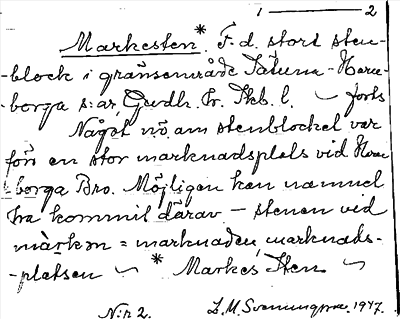 1 — 2
Markesten*. F. d. stort sten-
-block i gränsområde Sätuna - Horn-
-borga s:ar, Gudh. Fr. Skb. l. — forts
Något nö om stenblocket var
förr en stor marknadsplats vid Horn
borga Bro. Möjligen kan namnet
ha kommit därav — stenen vid
märkən = marknaden, marknads-
-platsen ~ * Markes Sten ~
N:r 2. L. M. Svenungsson. 1947.